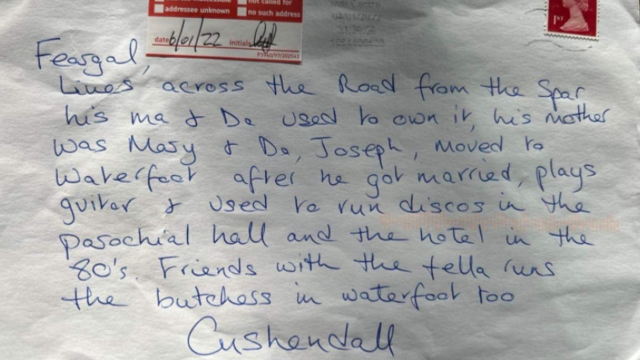 addressee unknown
not called for
no such address
date 6/01/22 initials
1st
Feargal,
Lives across the Road from the Spar
his ma & Da used to own it, his mother
was Mary & Da, Joseph, moved to
Waterfoot after he got married, plays
guitar & used to run discos in the
parochial hall and the hotel in the
80's. Friends with the fella runs
the butchers in waterfoot too
Cushendall